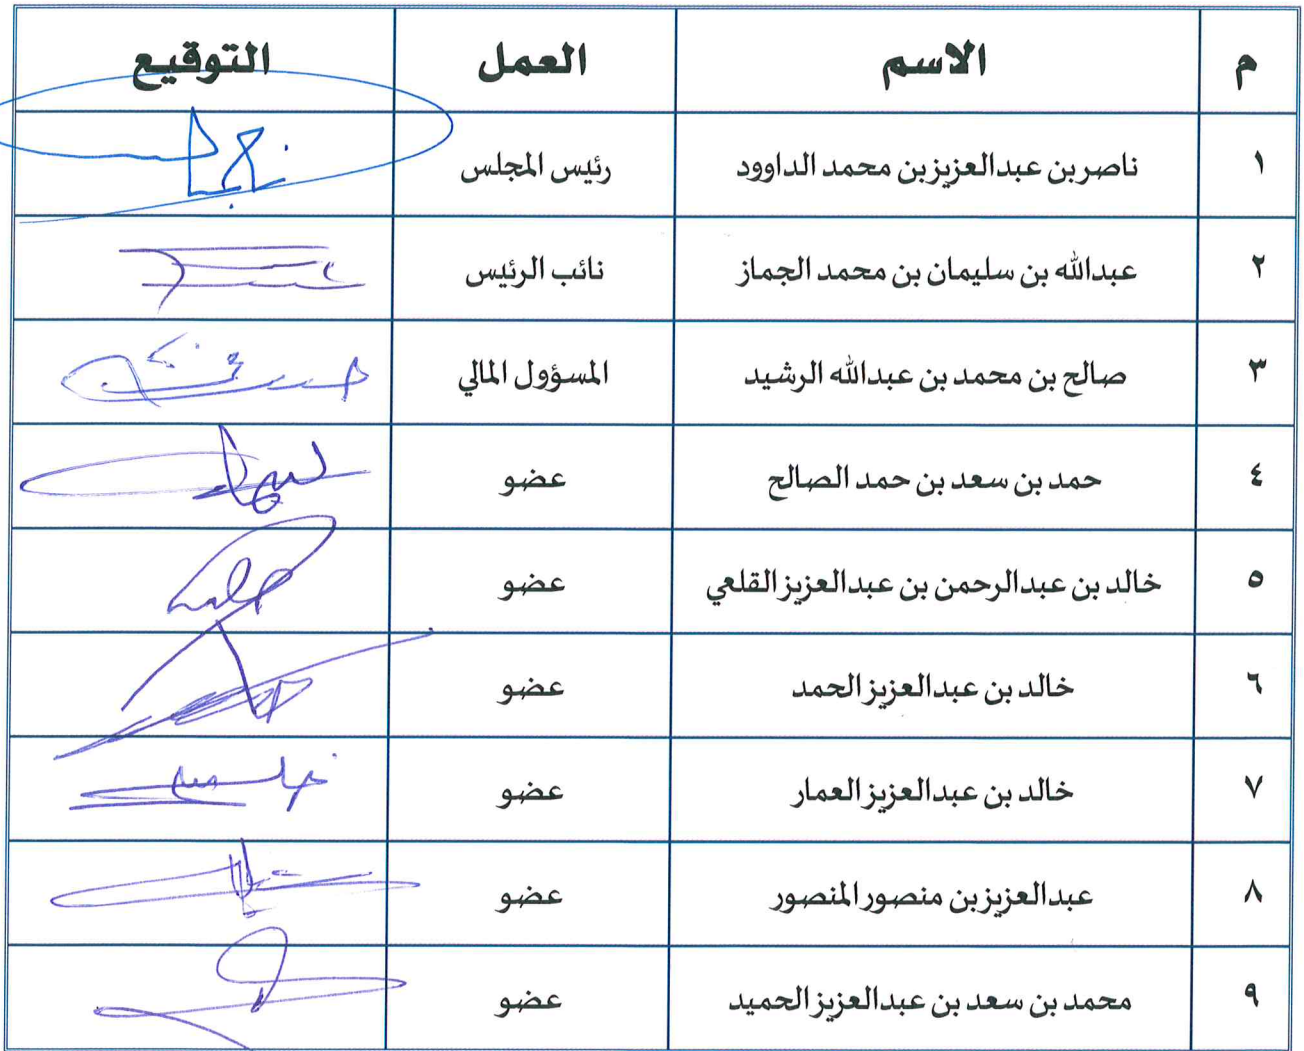 م الاسم العمل التوقيع
١ ناصر بن عبدالعزيز بن محمد الداوود رئيس المجلس
٢ عبدالله بن سليمان بن محمد الجماز نائب الرئيس
٣ صالح بن محمد بن عبدالله الرشيد المسؤول المالي
٤ حمد بن سعد بن حمد الصالح عضو
٥ خالد بن عبدالرحمن بن عبدالعزيز القلعي عضو
٦ خالد بن عبدالعزيز الحمد عضو
٧ خالد بن عبدالعزيز العمار عضو
٨ عبدالعزيز بن منصور المنصور عضو
٩ محمد بن سعد بن عبدالعزيز الحميد عضو